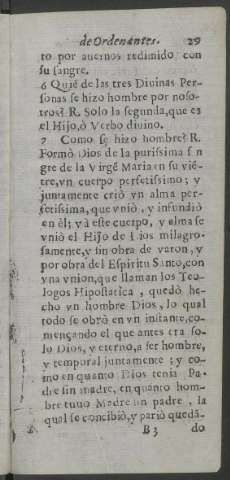 de Ordenantes. 29
to por auernos redimido con
su sangre.
6 Quié de las tres Divinas Per-
sonas se hizo hombre por noso-
tros? R. Solo la segunda, que es
el Hijo, ò Verbo divino.
7 Como se hizo hombre? R.
Formò Dios de la purissima san
gre de la Virgē Maria en su viē-
tre, vn cuerpo perfetissimo; y
juntamente criò vn alma per-
fetissima, que vniò, y infundiò
en èl; y à este cuerpo, y alma se
vniò el Hijo de Dios milagro-
samente, y sin obra de varon, y
por obra del Espiritu Santo, con
vna vnion, que llaman los Teo-
logos Hipostatica, quedò he-
cho vn hombre Dios, lo qual
todo se obrò en vn instante, co-
mençando el que antes era so-
lo Dios, y eterno, a ser hombre,
y temporal juntamente; y co-
mo en quanto Dios tenia Pa-
dre sin madre, en quanto hom-
bre tuuo Madre sin padre, la
qual se concibiò, y pariò quedā-
B3 do